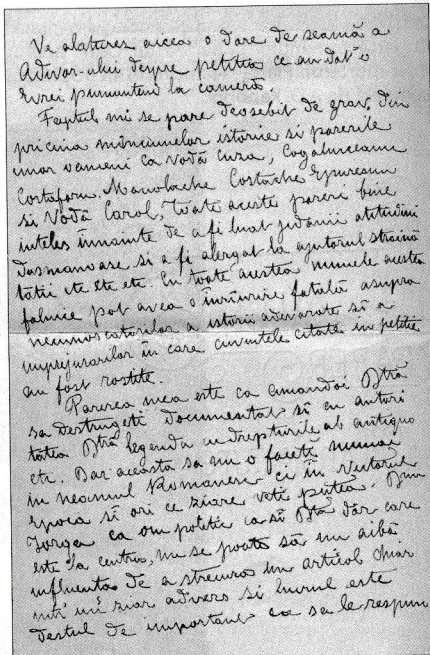 Ve alaturez aicea o dare de seamă a
Adevar-ului despre petitia ce au dat'o
Evrei pumunteni la cameră.
Faptul mi se pare deosebit de grav, din
pricina minciunelor istorice si parerile
unor oameni ca Vodă Cuza, Cogalniceanu
Costaforu, Manolache Costache Epureanu
si Vodă Carol, toate aceste pareri bine
inteles înnainte de a fi luat jidanii atitudini
dusmanoase si a fi alergat la ajutorul străină
tătii etc etc etc. Cu toate acestea numele acestea
falnice pot avea o înrîurire fatală asupra
necunoscatorilor a istorii adevarate si a
imprejurarilor în care cuvintele citate in petitie
au fost rostite.
Parerea mea este ca amandoi Dtră
sa destrugeti documentat si cu autori
tatea Dtră legenda cu drepturile ab antiquo
etc. Dar aceasta sa nu o faceti numai
in neamul Romanesc ci în Viitorul
Epoca si ori ce ziare veti putea. Dnu
Iorga ca om politic ca si Dtă dar care
este la centru, nu se poate să nu aibă
influenta de a strecura un articol chiar
intr'un ziar advers si lucrul este
destul de important ca sa le respun